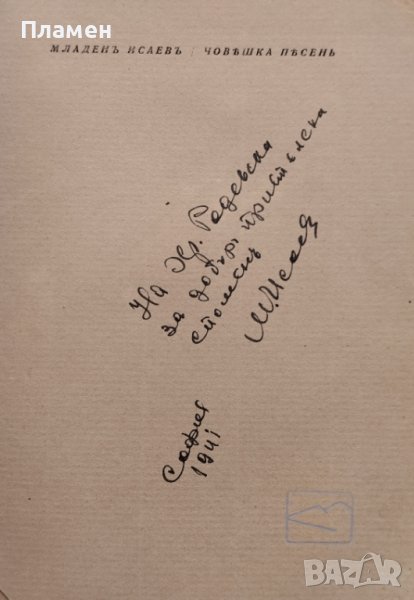 Пламен
МЛАДЕНЪ ИСАЕВЪ / ЧОВѢШКА ПѢСЕНЬ
На Хр. Радевски
за добъръ приятелски
споменъ
М. Исаевъ
София
1941
BAZAR